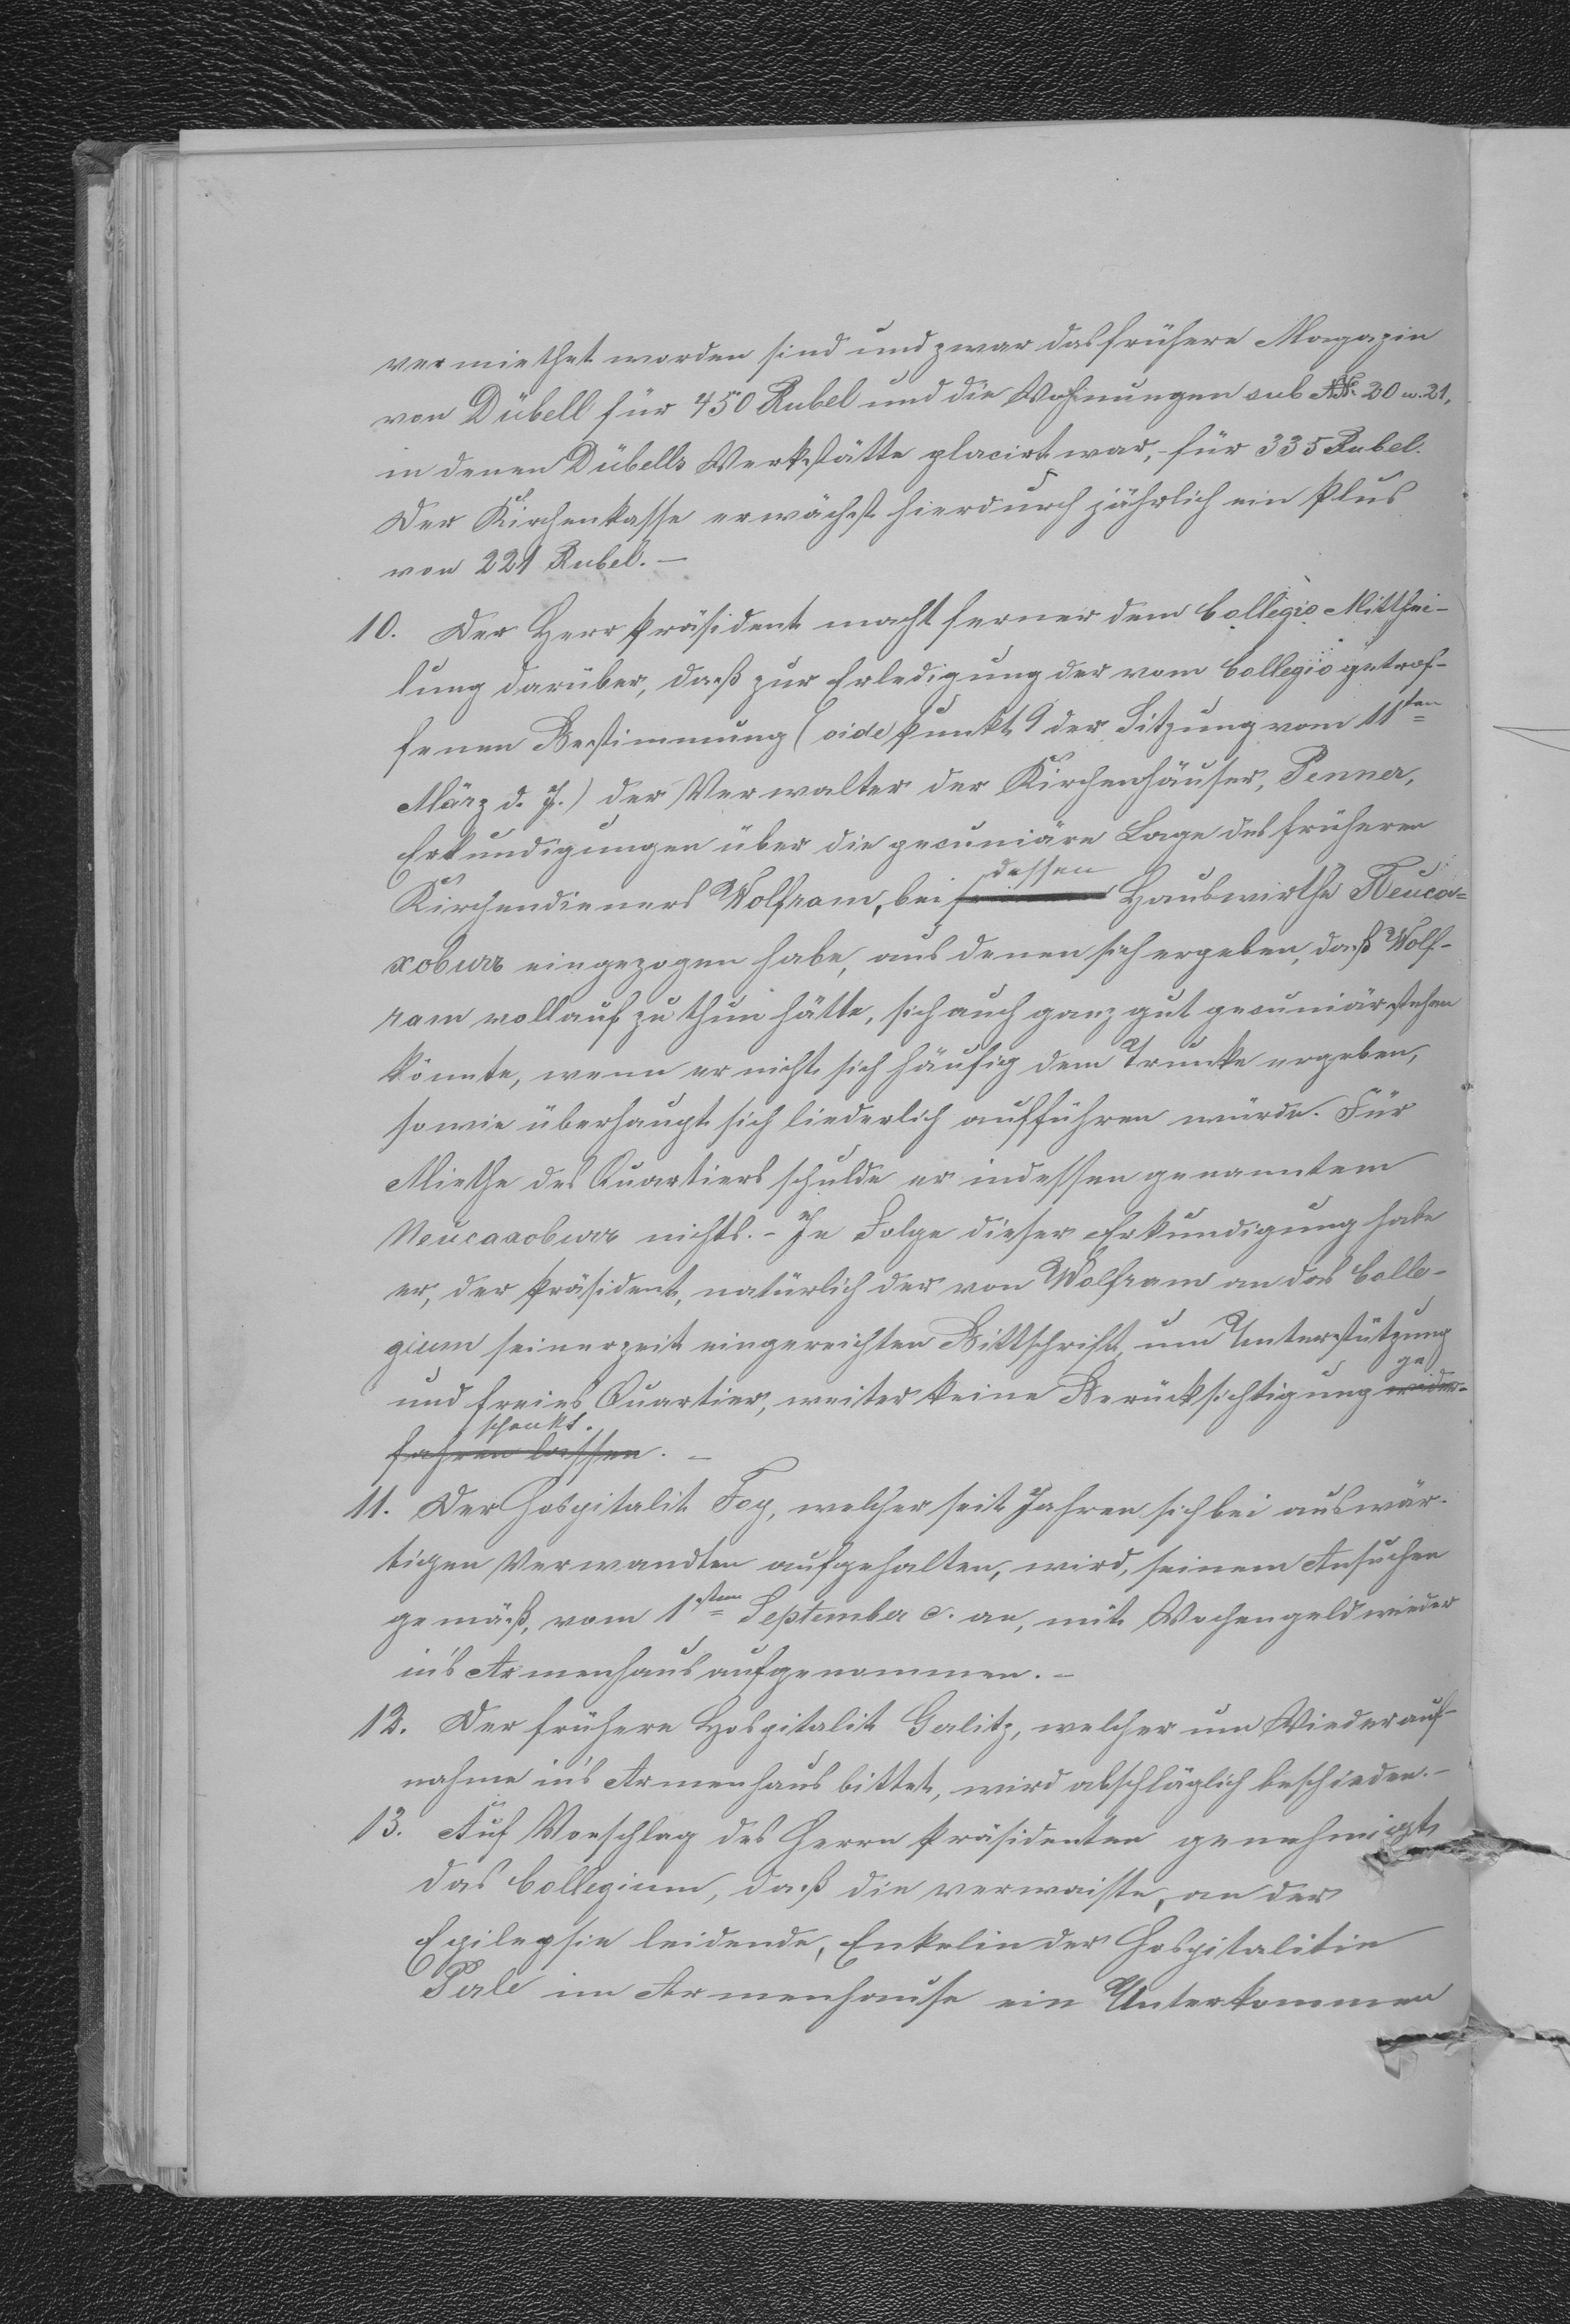 vermiethet worden sind und zwar das frühere Magazin
von Dübell für 450 Rubel und die Wohnungen sub NNo 20 u. 21,
in denen Dübells Werkstätte placirt war, für 335 Rubel.
Der Kirchenkasse erwächst hierdurch jährlich ein Plus
von 221 Rubel. –
10. Der Herr Präsident macht ferner dem Collegio Mitthei-
lung darüber, daß zur Erledigung der vom Collegio getrof-
fenen Bestimmung (vide Punkt 9 der Sitzung vom 11ten
März d. J.) der Verwalter der Kirchenhäuser, Penner,
Erkundigungen über die pecuniäre Lage des früheren
Kirchendieners Wolfram, bei dessen Hauswirthe
eingezogen habe, aus denen sich ergeben, daß Wolf-
ram vollauf zu thun hätte, sich auch ganz gut pecuniär stehen
könnte, wenn er nicht sich häufig dem Trunke ergeben,
sowie überhaupt sich liederlich aufführen würde. Für
Miethe des Quartiers schulde er indessen genanntem
nichts. – In Folge dieser Erkundigung habe
er, der Präsident, natürlich der von Wolfram an das Colle-
gium seinerzeit eingereichten Bittschrift um Unterstützung
und freies Quartier, weiter keine Berücksichtigung wider- ge
fahren lassen. schenkt. –
11. Der Hospitalit Foy, welcher seit Jahren sich bei auswär-
tigen Verwandten aufgehalten, wird, seinem Ansuchen
gemäß, vom 1sten September c. an, mit Wochengeld wieder
in's Armenhaus aufgenommen. –
12. Der frühere Hospitalit Gerlitz, welcher um Wiederauf-
nahme in's Armenhaus bittet, wird abschläglich beschieden. –
13. Auf Vorschlag des Herrn Präsidenten genehmigt
das Collegium, daß die verwaiste, an der
Epilepsie leidende, Enkelin der Hospitalitin
Perle im Armenhause ein Unterkommen